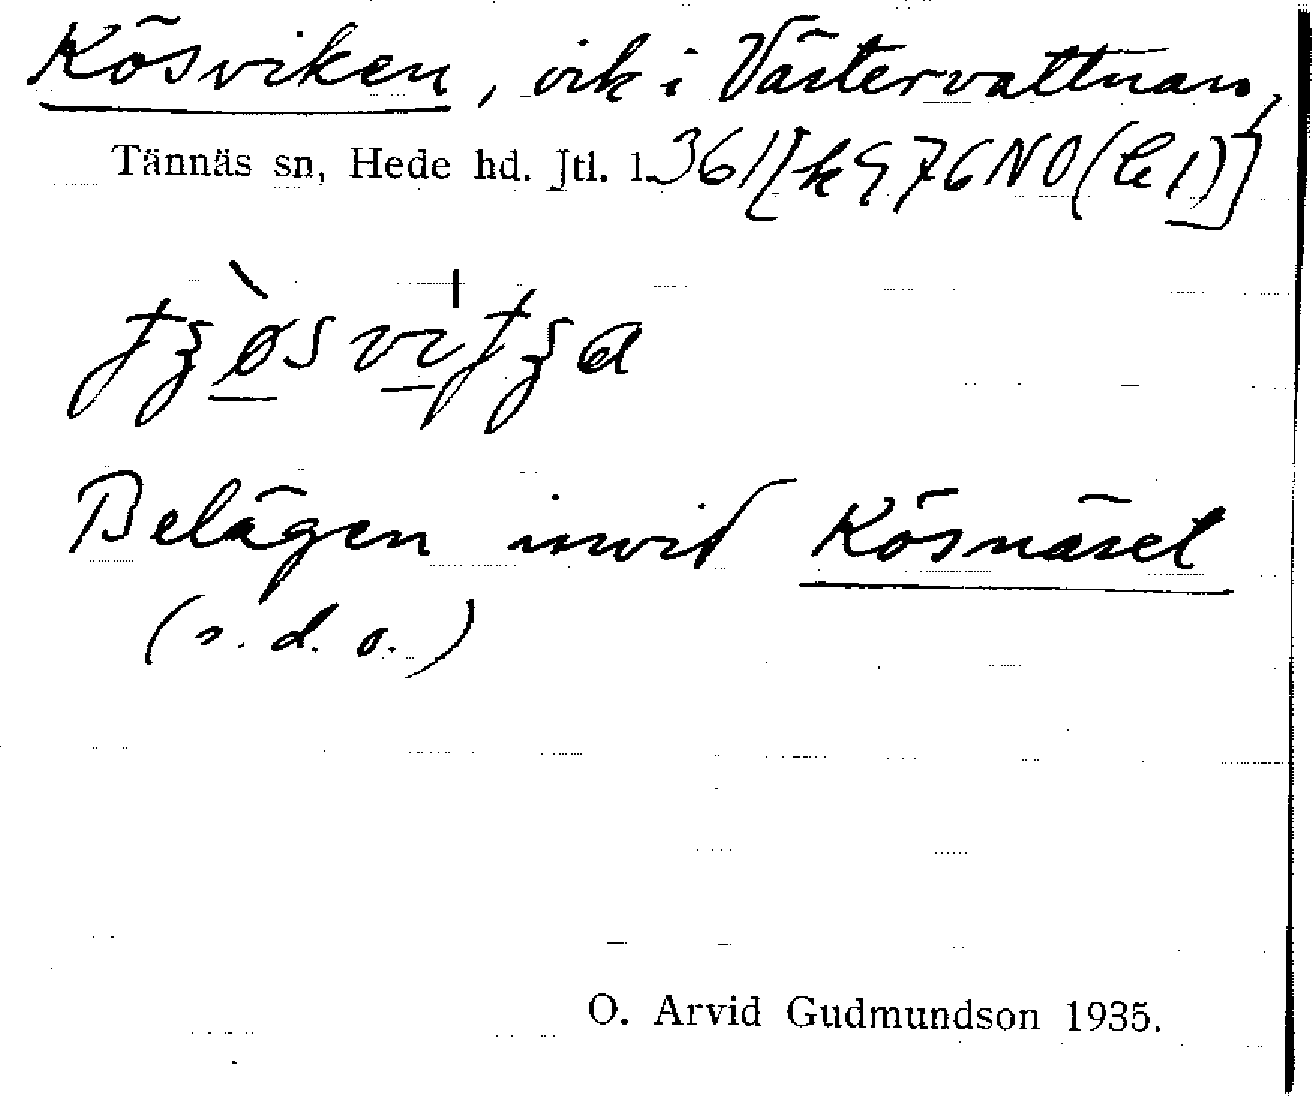 Kösviken, vik i Västervattnan,
Tännäs sn, Hede hd. Jtl. l. 361 [k 976 NO (C 1)]
Belägen invid Kösnäset
(s. d. o.)
O. Arvid Gudmundson 1935.